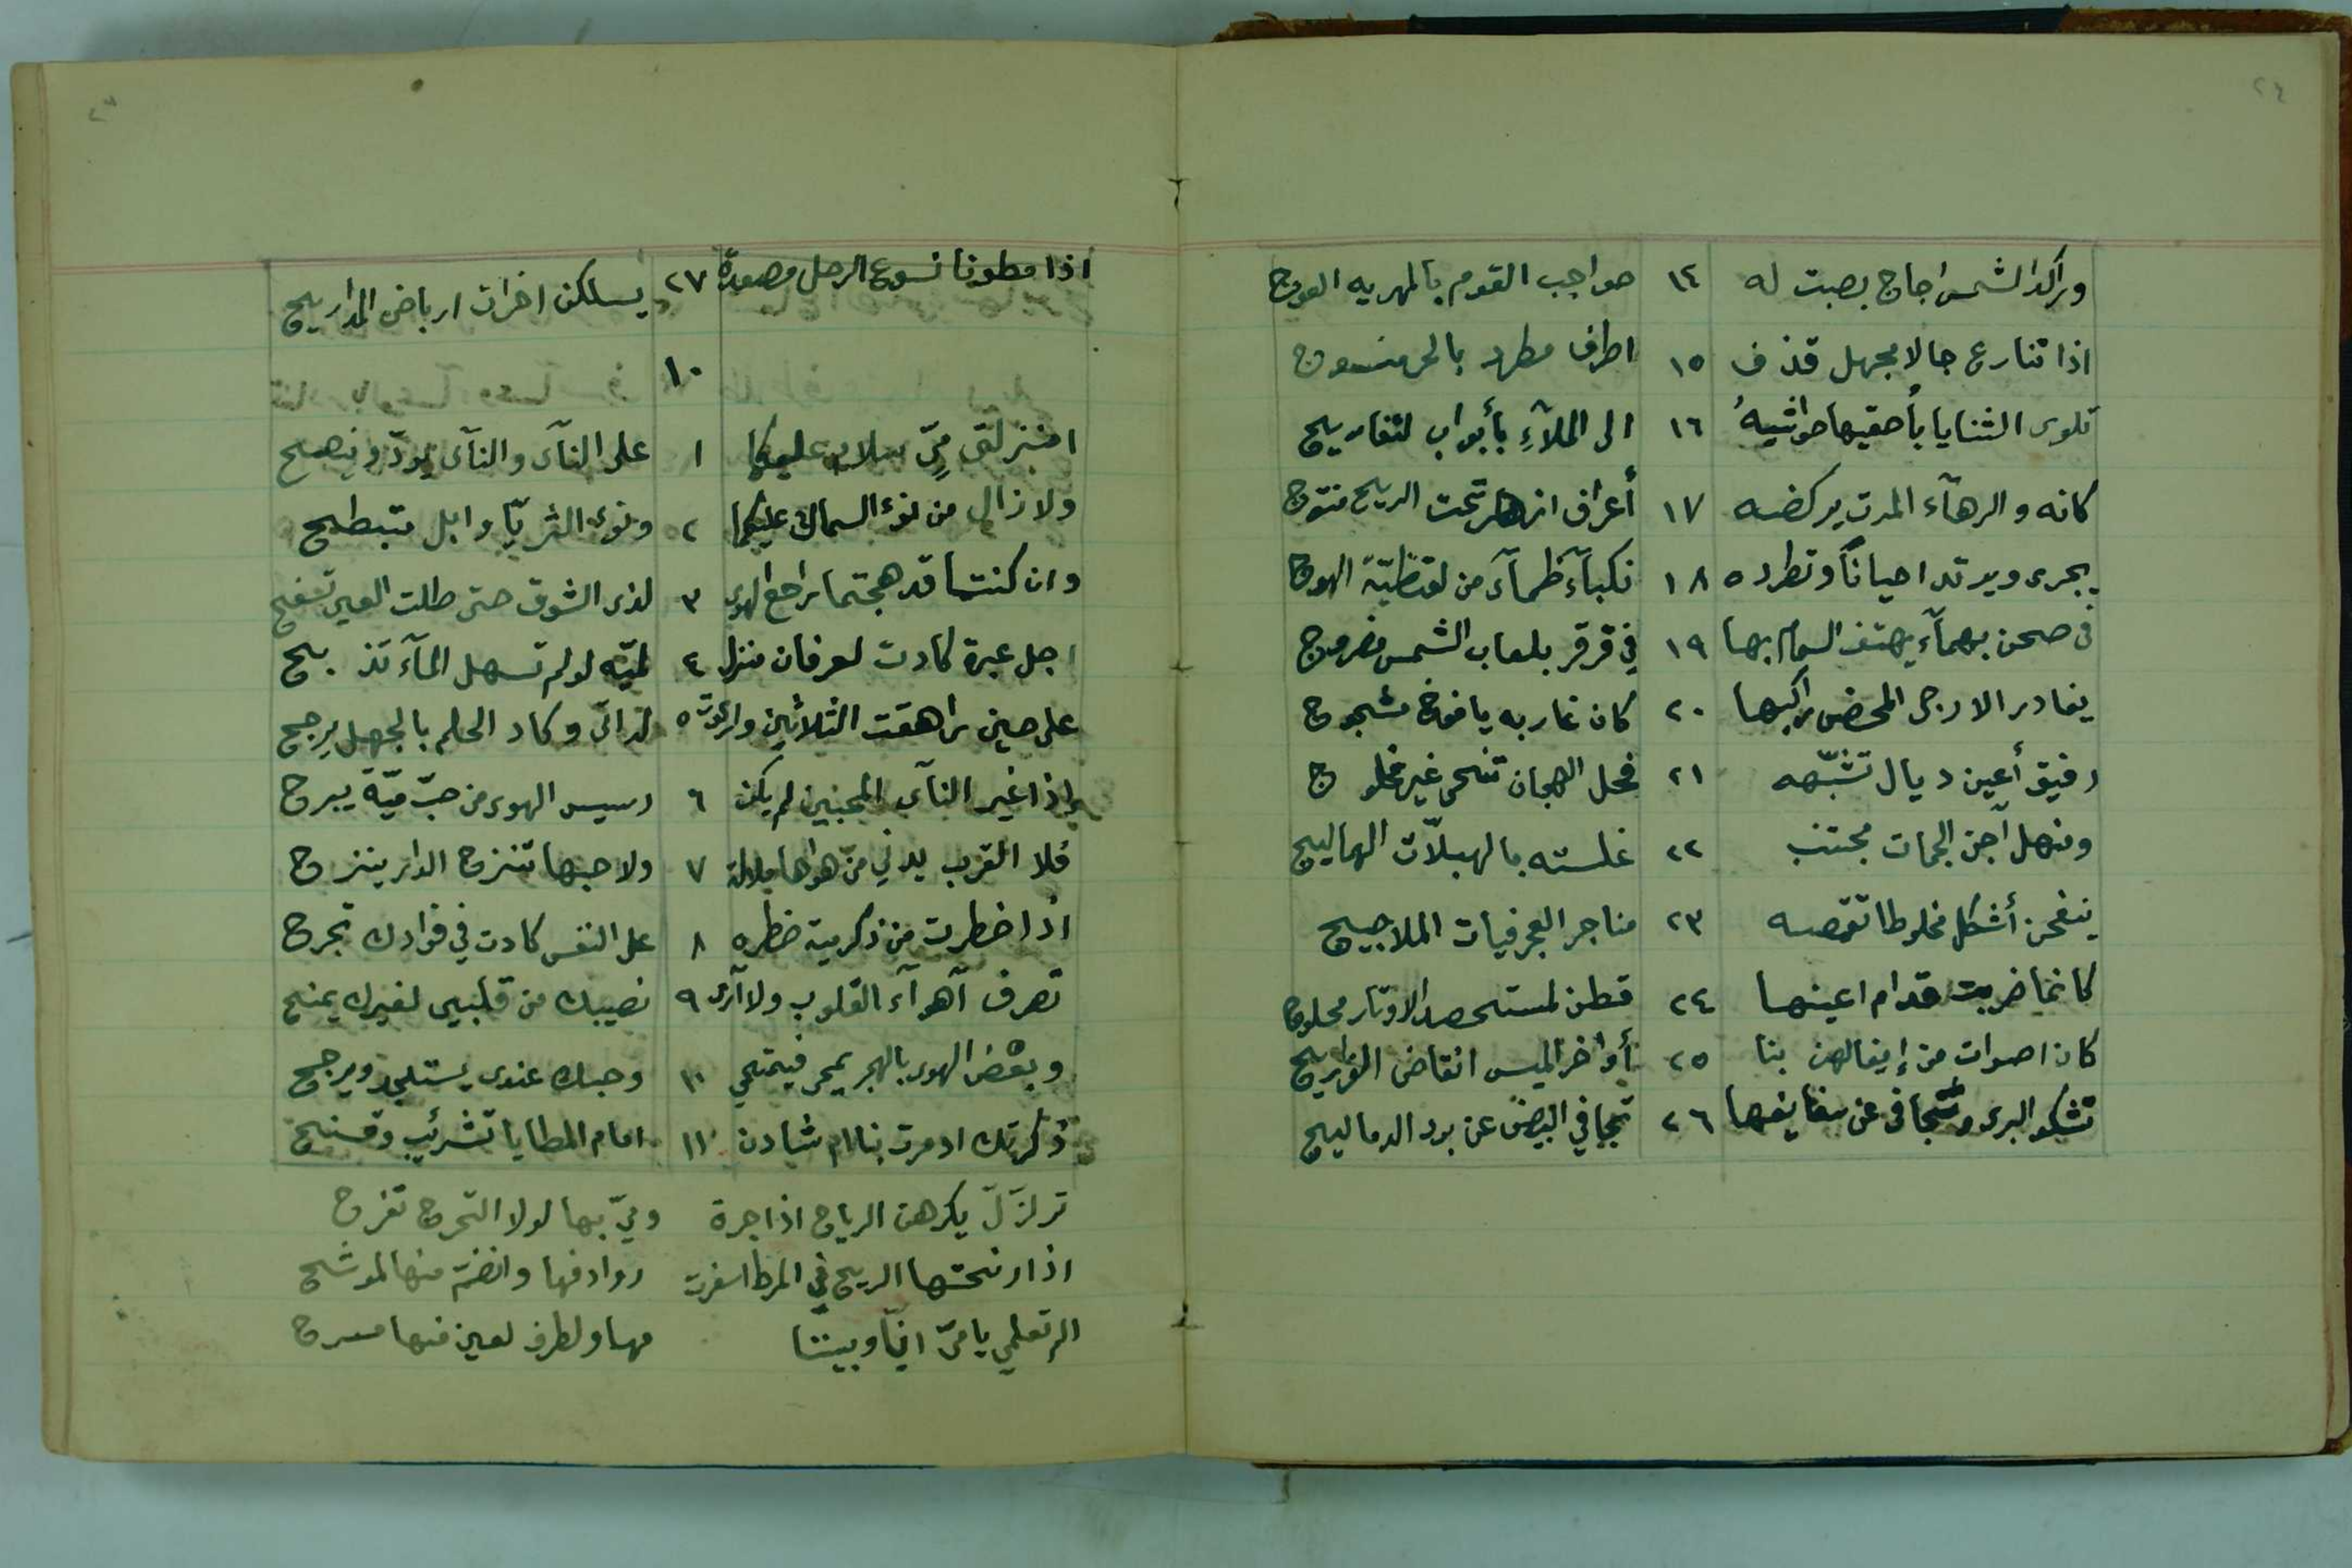 ٢٤
وراكد الشمس اجاج بصبت له ١٤ حواجب القوم بالمهريه العوج
اذا تنازع جالا مجهل قذف ١٥ اطراف مطرد بالحر منسوج
تلوى الثنايا بأحقيها حواشيهُ ١٦ الملآءِ بأبواب لتفاريج
كانه والرهآء المرت يركضه ١٧ أعراف ازهر تحت الريح منتوج
يجرى ويرتد احياناً وتطرده ١٨ نكبآء ظمآء من لقيظيّة الهوج
فى صحن بهمآء يهتف السهام بها ١٩ في قرقر بلعاب الشمس مضروج
يغادر الارحل المحض راكبها ٢٠ كان غاربه يافوخ مشجوج
رفيق أعين ديال تشبّهه ٢١ فحل الهجان تنحى غير مخلوج
ومنهل آجن الجمات مجتنب ٢٢ غلسته بالهبلاّت الهماليج
ينفحن أشكل مخلوطا تقمصه ٢٣ مناجر العجرفيات الملاجيج
كانما ضربت قدام اعينها ٢٤ قطن لمستحصد الاوتار محلوج
كان اصوات من إيغالهن بنا ٢٥ أواخر الميس انقاض الفراريج
تشكو البرى وتتجافى عن سفايفها ٢٦ تجافي البيض عن برد الدماليج
٢٣
اذا مطونا نسوع الرحل مصعدة ٢٧ يسلكن اخرات ارباض المداريج
١٠
امنزلتى ميّ سلام عليكما ١ على النآى والنآى يودّ وينصح
ولا زال من نوء السماك عليكما ٢ ونوء الثريّا وابل متبطح
وان كنتما قد هجتما راجع الهوى ٣ لذى الشوق حتى ظلت العين تسفح
اجل عبرة كادت لعرفان منزل ٤ لميّه لو لم تسهل المآء تذبح
على حين راهقت الثلاثين وارعوت ٥ لداتى وكاد الحلم بالجهل يرجح
اذا غير النآى المحبين لم يكن ٦ رسيس الهوى من حبّ ميّة يبرح
فلا القرب يدني من هواها ملالة ٧ ولا حبها تنزح الدار ينزح
اذا خطرت من ذكر مية خطره ٨ على النفس كادت في فوادك تجرح
تصرف آهوآء القلوب ولا آرى ٩ نصيبك من قلبى لغيرك يمنح
وبعض الهوى بالهجر يمحى فيمتحي ١٠ وحبك عندى يستجد ويرجح
ذكرتك اد مرت بنا ام شادن ١١ امام المطايا تشرئب وتسنح
ترلزَلَ يكرهن الرياح اذا جرة وميّ بها لولا التحرج تفرح
اذا رنحتها الريح في المرط اسفرت روادفها وانضم منها الموشح
الم تعلمي يا ميّ انّا وبيننا مهاو لطرف لعين منها مسرح